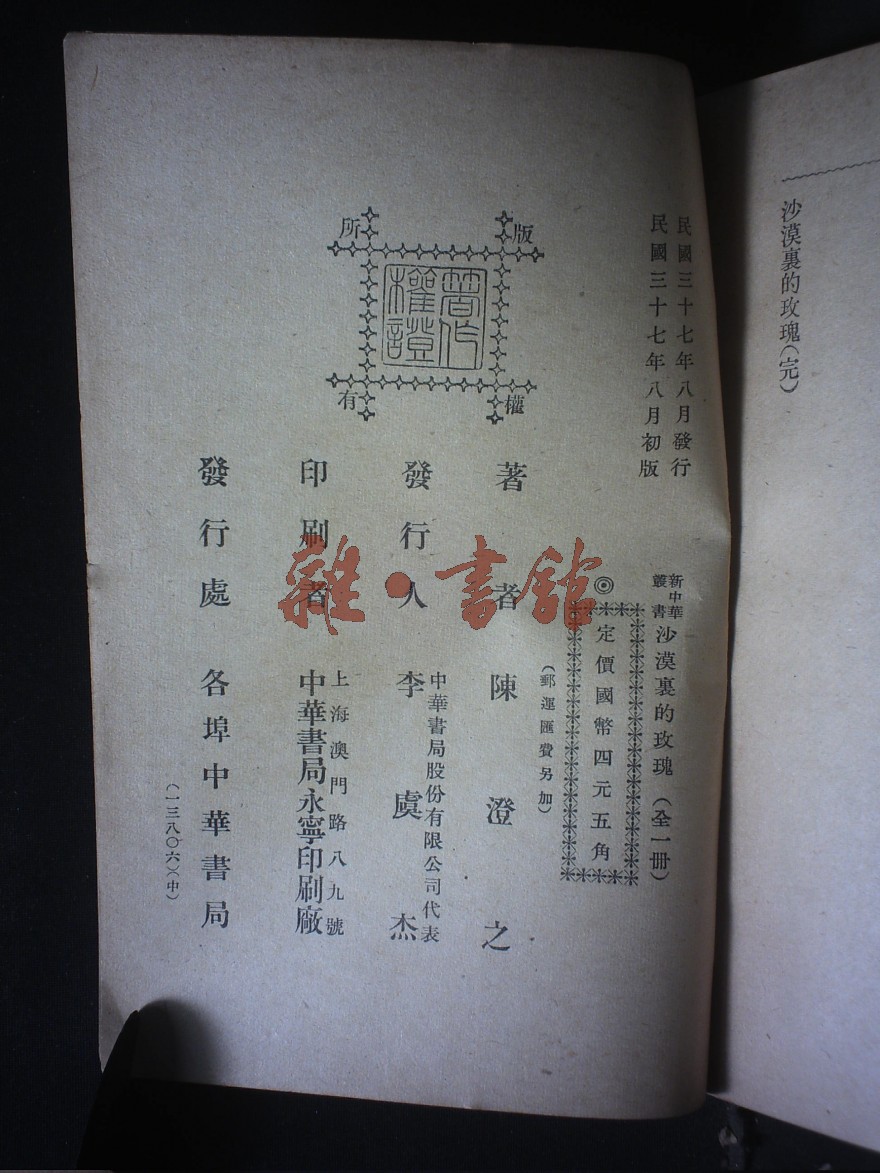 沙漠裏的玫瑰(完)
民國三十七年八月發行
民國三十七年八月初版
新中華
叢書
沙漠裏的玫瑰(全一冊)
◎定價國幣四元五角
(郵運匯費另加)
版權所有
著作權證
著者 陳澄之
發行人 中華書局股份有限公司代表
李虞杰
印刷者 上海澳門路八九號
中華書局永寧印刷廠
發行處 各埠中華書局
(一三八〇六)(中)
雜·書館